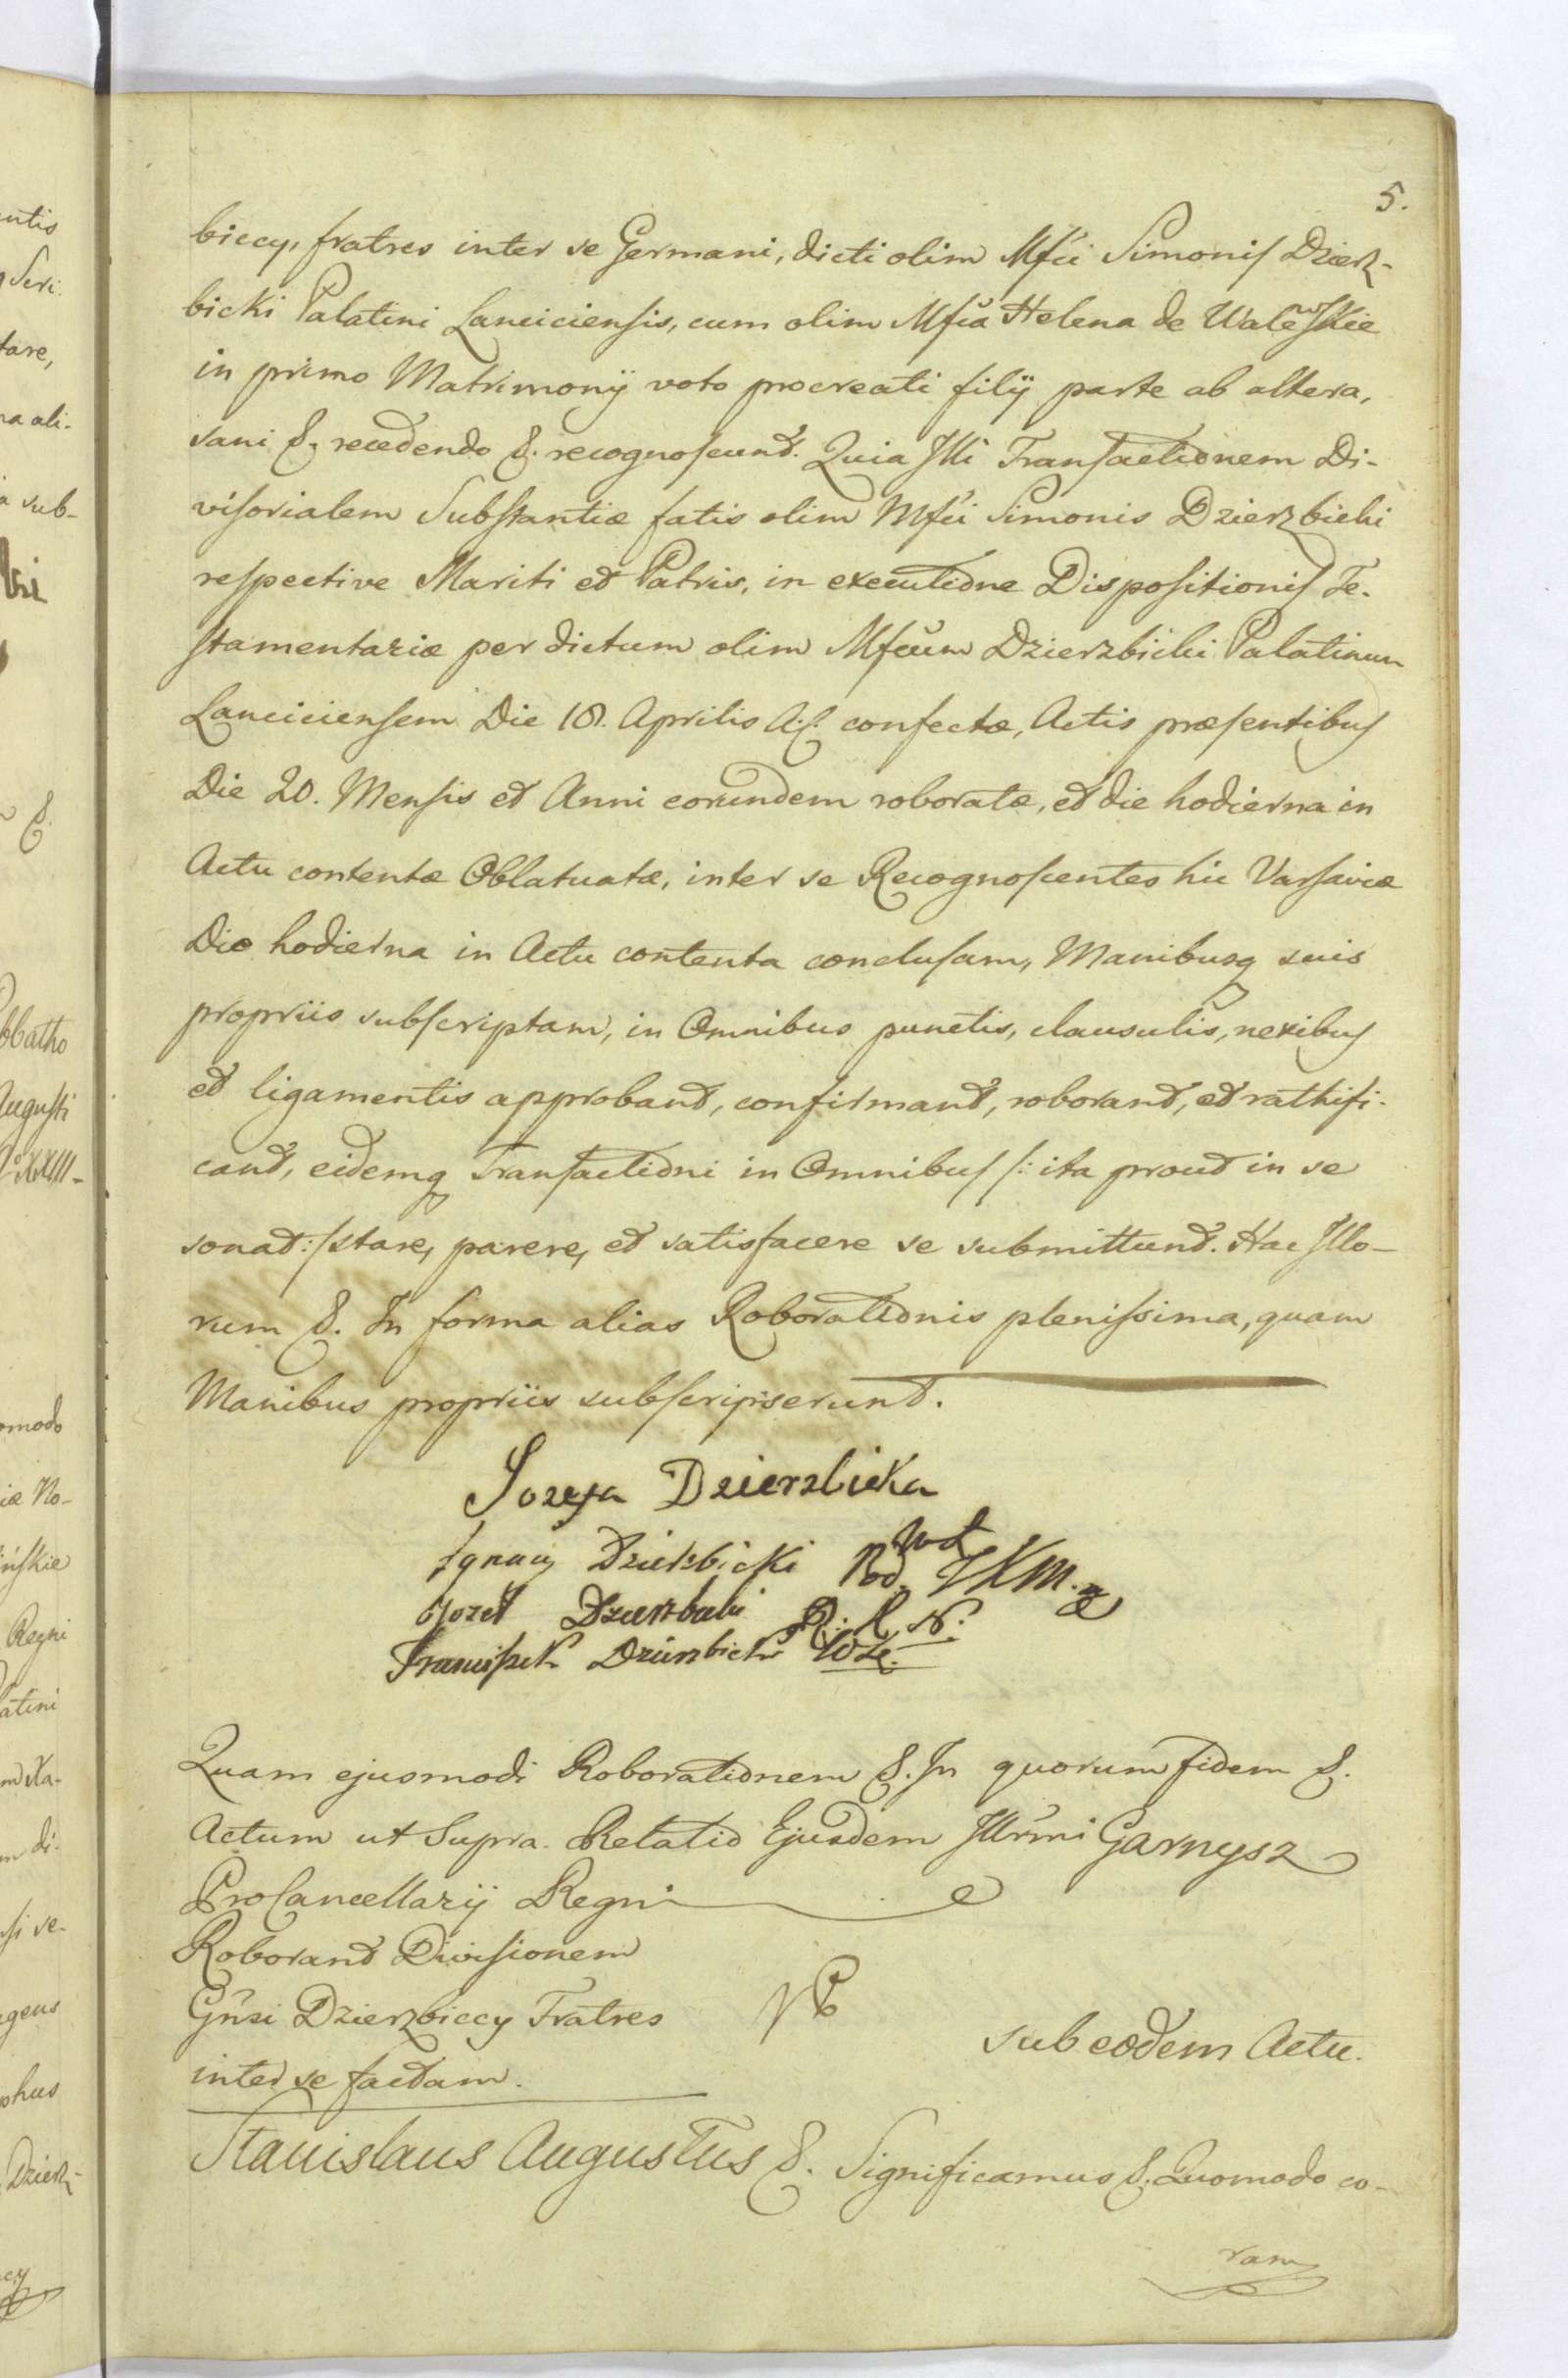 5.
biccy, fratres inter se Germani, dicti olim Mfci Simonis Dzierz-
bicki Palatini Lanciciensis, cum olim Mfca Helena de Walewskie
in primo Matrimonij voto procreati filij parte ab altera,
sani &. recedendo &. recognoscunt. Quia Illi Transactionem Di-
visorialem Substantiæ fatis olim Mfci Simonis Dzierzbicki
respective Mariti et Patris, in executione Dispositionis Te-
stamentariæ per dictum olim Mfcum Dzierzbicki Palatinum
Lanciciensem Die 18. Aprilis A. c. confectæ, Actis præsentibus
Die 20. Mensis et Anni eorundem roboratæ, et die hodierna in
Actu contentæ Oblatuatæ, inter se Recognoscentes hic Varsaviæ
Die hodierna in Actu contenta conclusam, Manibusq suis
propriis subscriptam, in Omnibus punctis, clausulis, nexibus
et ligamentis approbant, confirmant, roborant, et rathifi-
cant, eidemq Transactioni in Omnibus /: ita prout in se
sonat :/ stare, parere, et satisfacere se submittunt. Hac Illo-
rum &. In forma alias Roborationis plenissima, quam
Manibus propriis subscripserunt.
Jozefa Dzierzbicka
Ignacy Dzierzbicki Pod. JKM.
Jozef Dzierzbicki
Franciszek Dzierzbicki
Quam ejusmodi Roborationem &. In quorum fidem &.
Actum ut Supra. Relatio Ejusdem Illrmi Garnysz
ProCancellarij Regni
Roborant Divisionem
Gnsi Dzierzbiccy Fratres
inter se factam.
sub eodem Actu.
Stanislaus Augustus &. Significamus &. Quomodo co-
ram